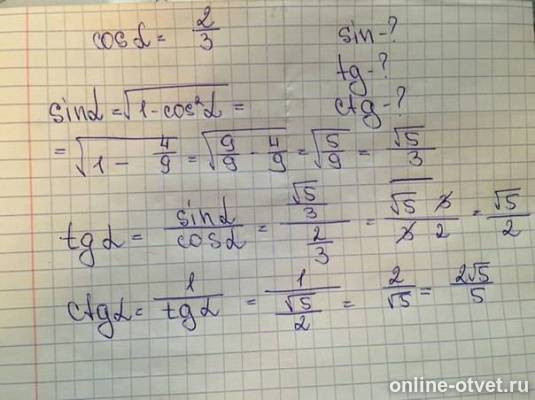 cos α = 2/3 sin - ?
tg - ?
sin α = √(1 - cos²α) = ctg - ?
= √(1 - 4/9) = √(9/9 - 4/9) = √(5/9) = √5/3
tg α = sin α/cos α = (√5/3)/(2/3) = (√5 · 3)/(3 · 2) = √5/2
ctg α = 1/tg α = 1/(√5/2) = 2/√5 = 2√5/5
online-otvet.ru